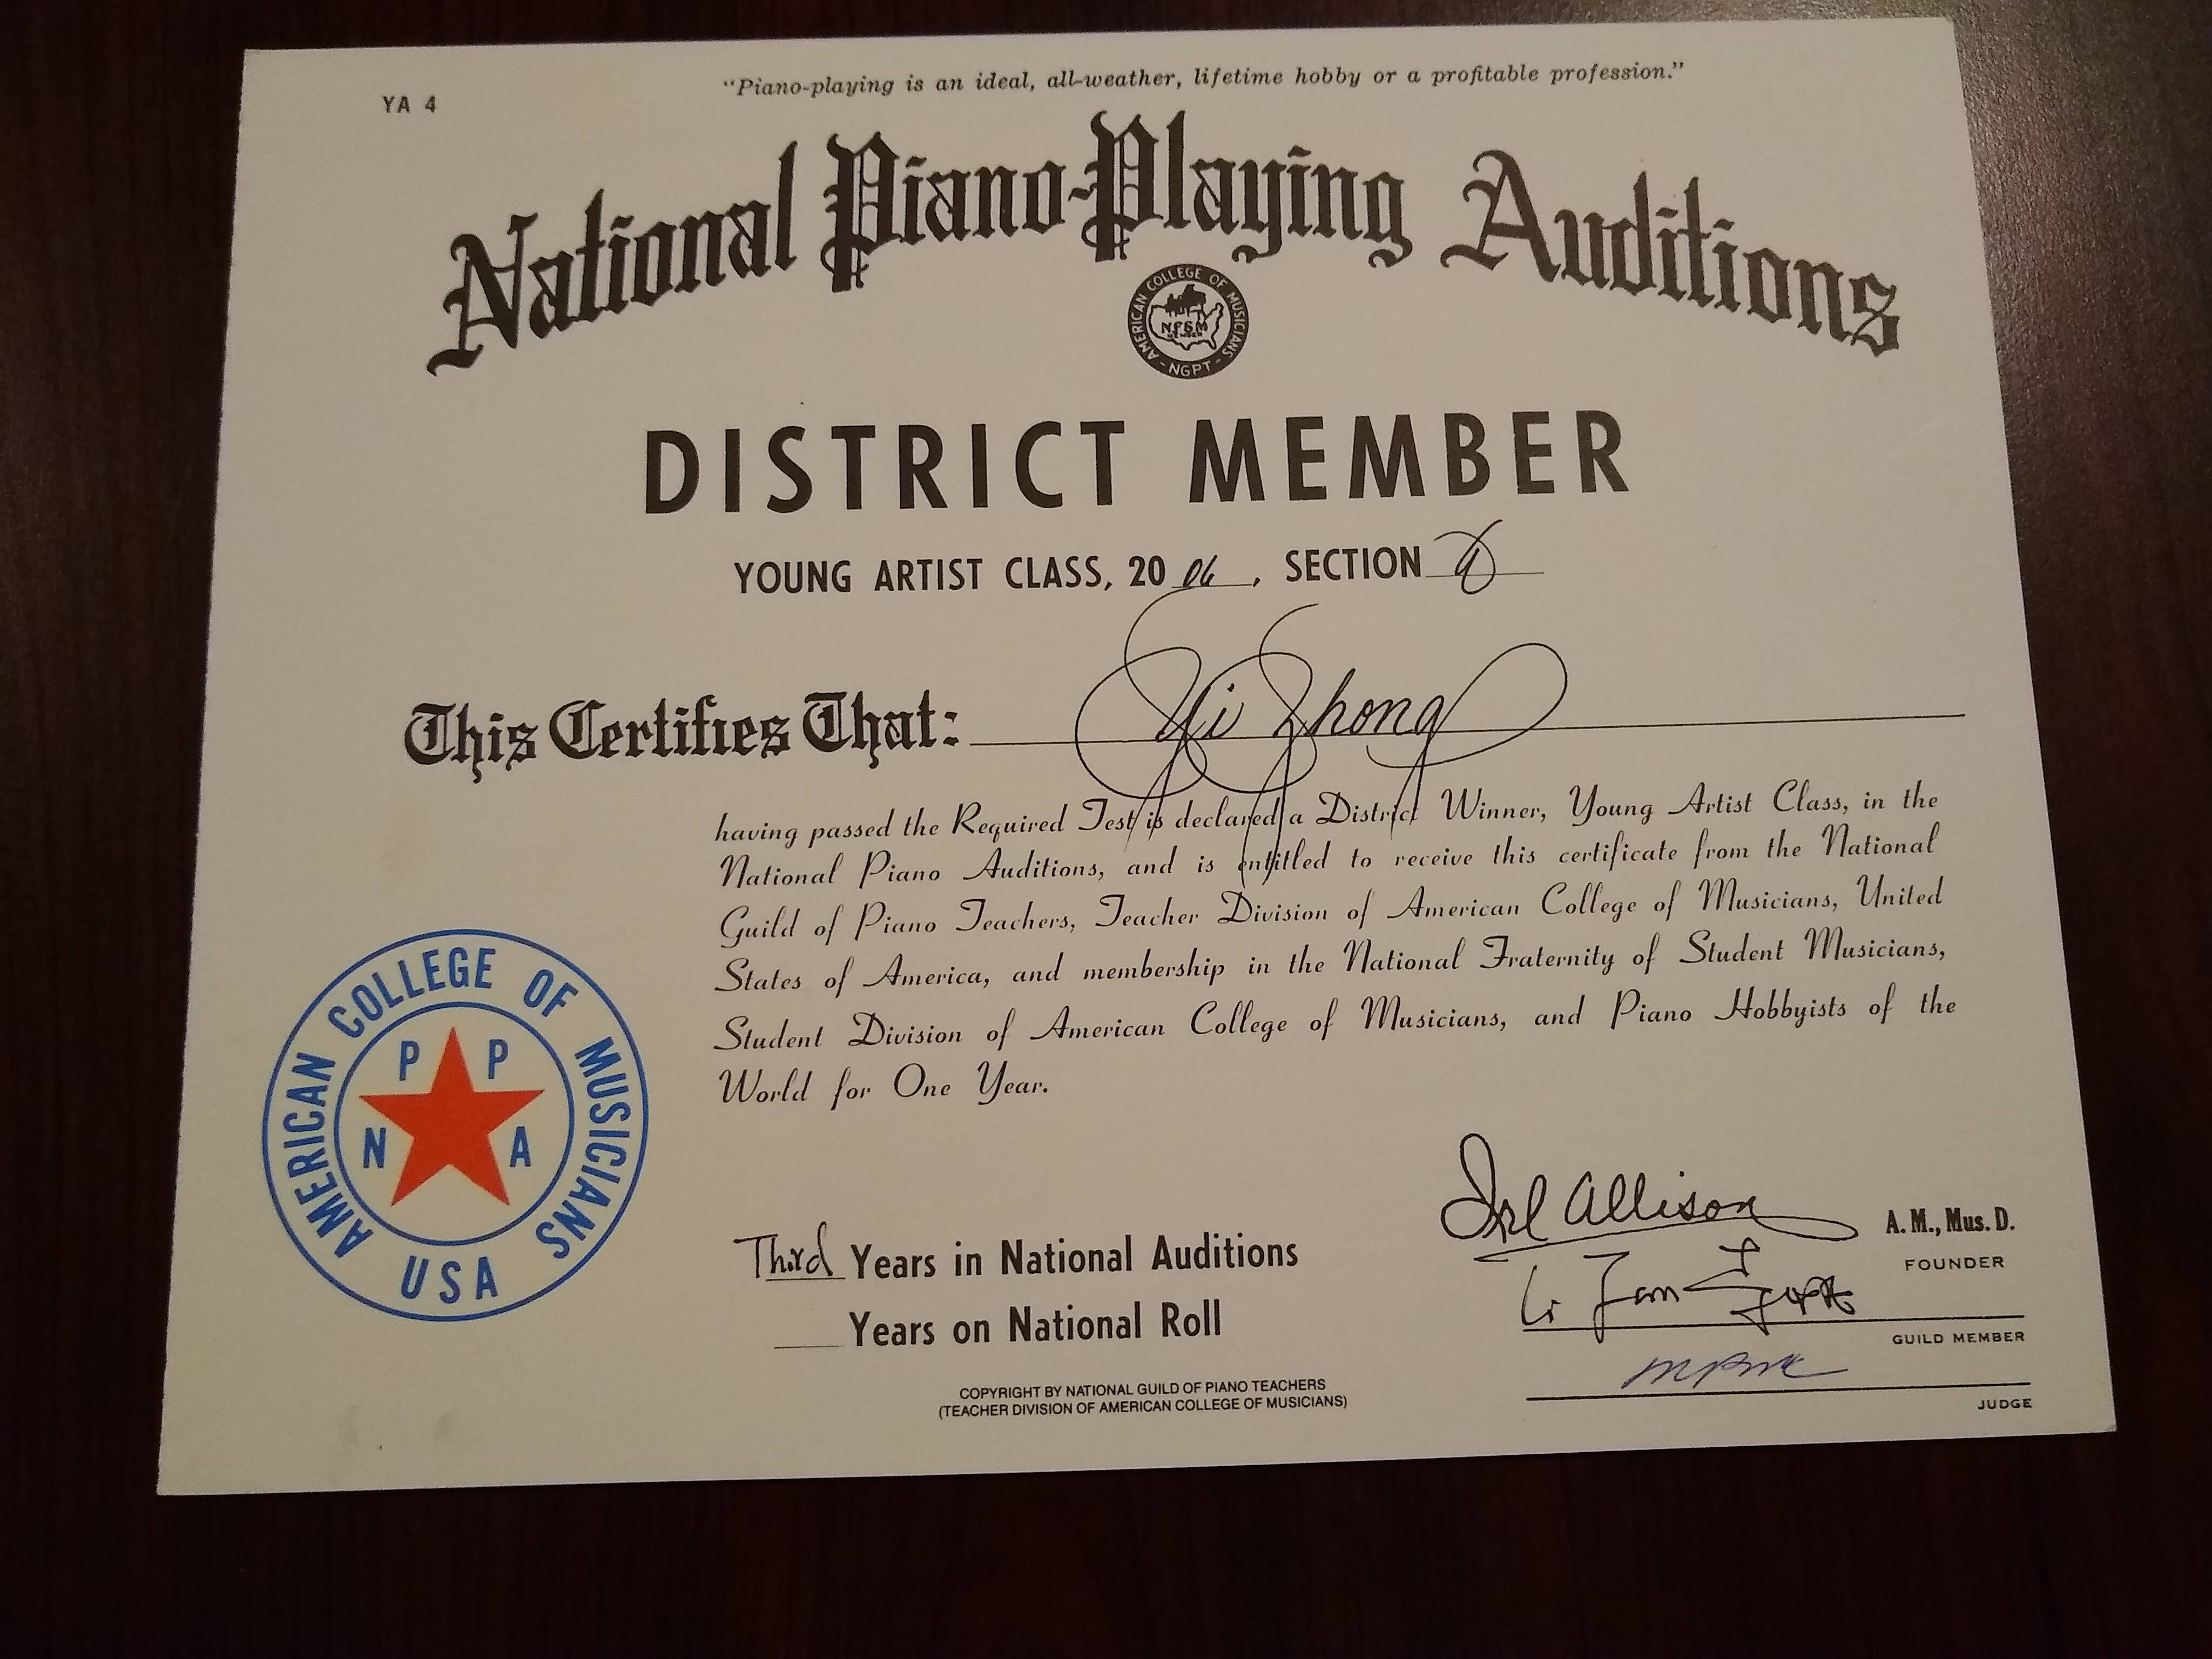 YA 4
"Piano-playing is an ideal, all-weather, lifetime hobby or a profitable profession."
National Piano-Playing Auditions
AMERICAN COLLEGE OF MUSICIANS
NFSM
MEMBER
- NGPT -
DISTRICT MEMBER
YOUNG ARTIST CLASS, 20 06, SECTION
This Certifies That: Yi Zhong
having passed the Required Test is declared a District Winner, Young Artist Class, in the
National Piano Auditions, and is entitled to receive this certificate from the National
Guild of Piano Teachers, Teacher Division of American College of Musicians, United
States of America, and membership in the National Fraternity of Student Musicians,
Student Division of American College of Musicians, and Piano Hobbyists of the
World for One Year.
AMERICAN COLLEGE OF MUSICIANS
P P
N A
USA
Third Years in National Auditions
Years on National Roll
Irl Allison A. M., Mus. D.
FOUNDER
GUILD MEMBER
JUDGE
COPYRIGHT BY NATIONAL GUILD OF PIANO TEACHERS
(TEACHER DIVISION OF AMERICAN COLLEGE OF MUSICIANS)